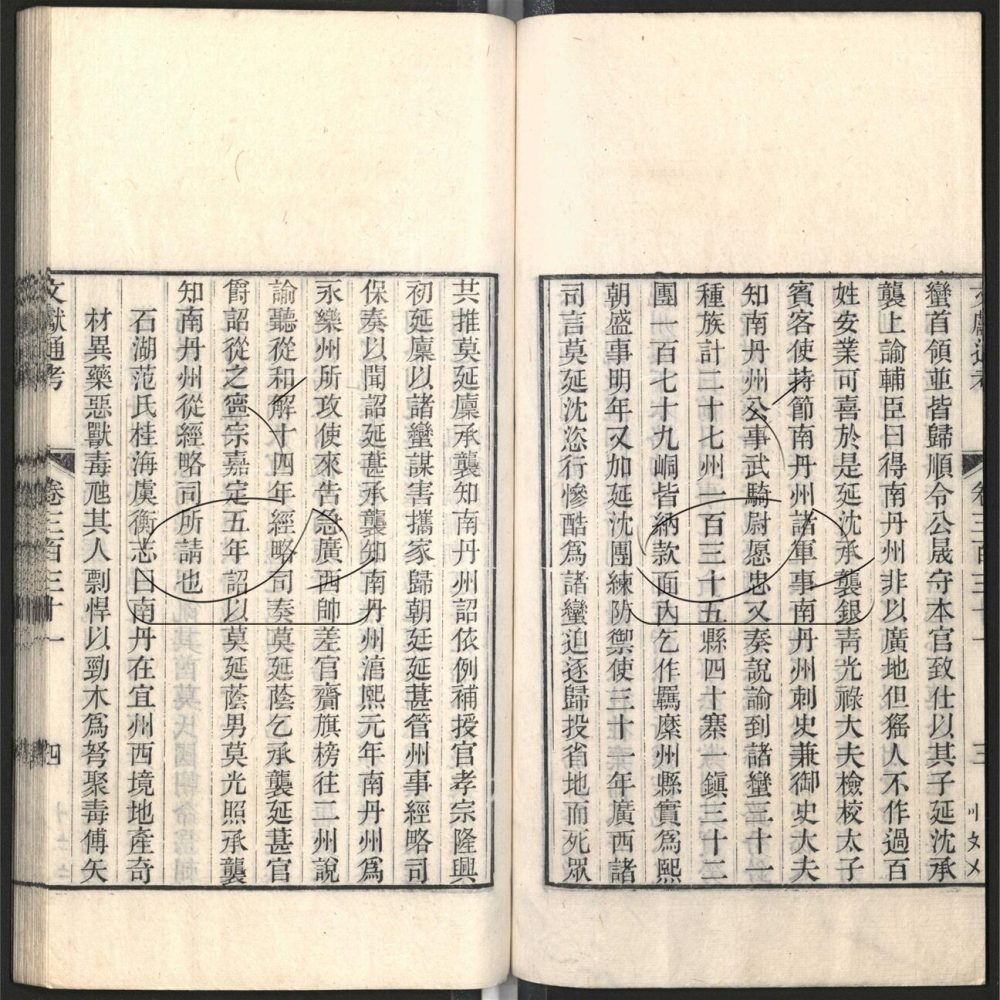 文獻通考 卷三百三十一 三
蠻首領並皆歸順令公晟守本官致仕以其子延沈承
襲上諭輔臣曰得南丹州非以廣地但猺人不作過百
姓安業可喜於是延沈承襲銀靑光祿大夫檢校太子
賓客使持節南丹州諸軍事南丹州刺史兼御史大夫
知南丹州公事武騎尉愿忠又奏說諭到諸蠻三十一
種族計二十七州一百三十五縣四十寨一鎭三十二
團一百七十九峒皆納款面內乞作羈縻州縣實爲熙
朝盛事明年又加延沈團練防禦使三十一年廣西諸
司言莫延沈恣行慘酷爲諸蠻迫逐歸投省地而死眾
共推莫延廩承襲知南丹州詔依例補授官孝宗隆興
初延廩以諸蠻謀害攜家歸朝廷延葚管州事經略司
保奏以聞詔延葚承襲知南丹州㵎熙元年南丹州爲
永樂州所攻使來告急廣西帥差官齎旗榜往二州說
諭聽從和解十四年經略司奏莫延蔭乞承襲延葚官
爵詔從之寧宗嘉定五年詔以莫延蔭男莫光照承襲
知南丹州從經略司所請也
石湖范氏桂海虞衡志曰南丹在宜州西境地產奇
材異藥惡獸毒虺其人剽悍以勁木爲弩聚毒傅矢
文獻通考 卷三百三十一 四